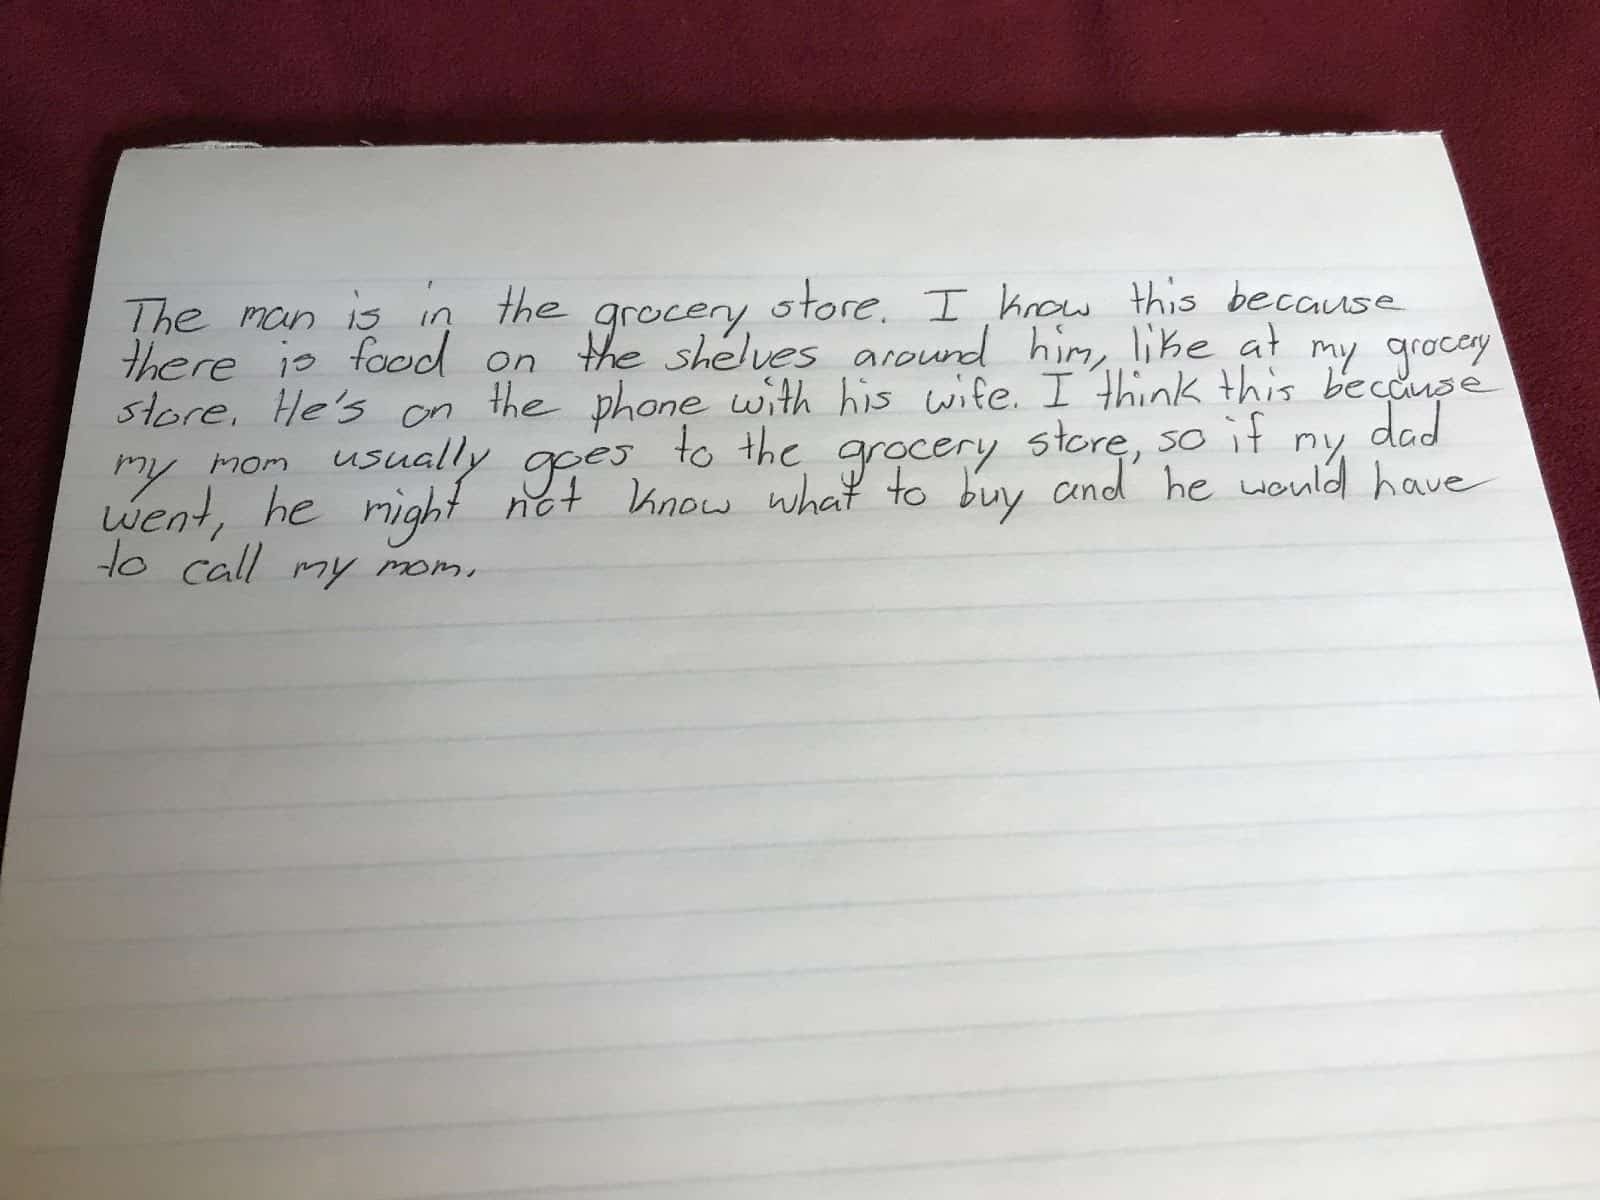 The man is in the grocery store. I know this because
there is food on the shelves around him, like at my grocery
store. He's on the phone with his wife. I think this because
my mom usually goes to the grocery store, so if my dad
went, he might not know what to buy and he would have
to call my mom.